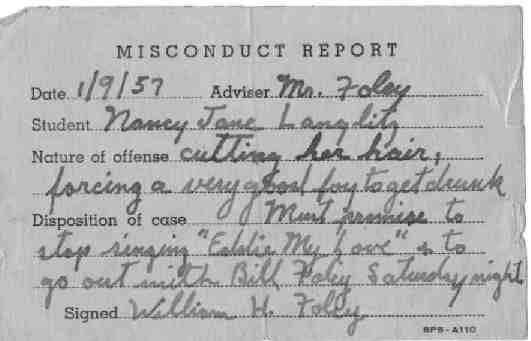 MISCONDUCT REPORT
Date 1/9/57 Adviser Mr. Foley
Student Nancy Jane Langlitz
Nature of offense cutting her hair,
forcing a very good boy to get drunk
Disposition of case Must promise to
stop singing "Eddie My Love" & to
go out with Bill Foley Saturday night
Signed William H. Foley
BPS-A110